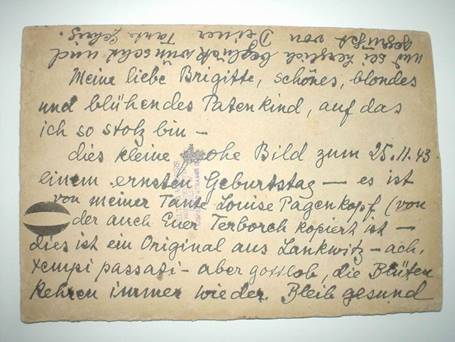 Meine liebe Brigitte, schönes, blondes
und blühendes Patenkind, auf das
ich so stolz bin –
dies kleine frohe Bild zum 25.11.43
einem ernsten Geburtstag – es ist
von meiner Tante Louise Pagenkopf (von
der auch Euer Terborch kopiert ist –
dies ist ein Original aus Lankwitz – ach,
tempi passati – aber gottlob, die Blüten
kehren immer wieder. Bleib gesund
und sei herzlich beglückwünscht und
gegrüßt von Deiner Tante